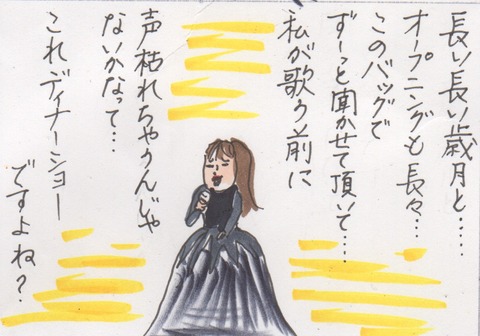 長い長い歳月と……
オープニングも長々…
このバッグで
ずーっと聞かせて頂いて……
私が歌う前に
声枯れちゃうんじゃ
ないかなって…
これディナーショー
ですよね？